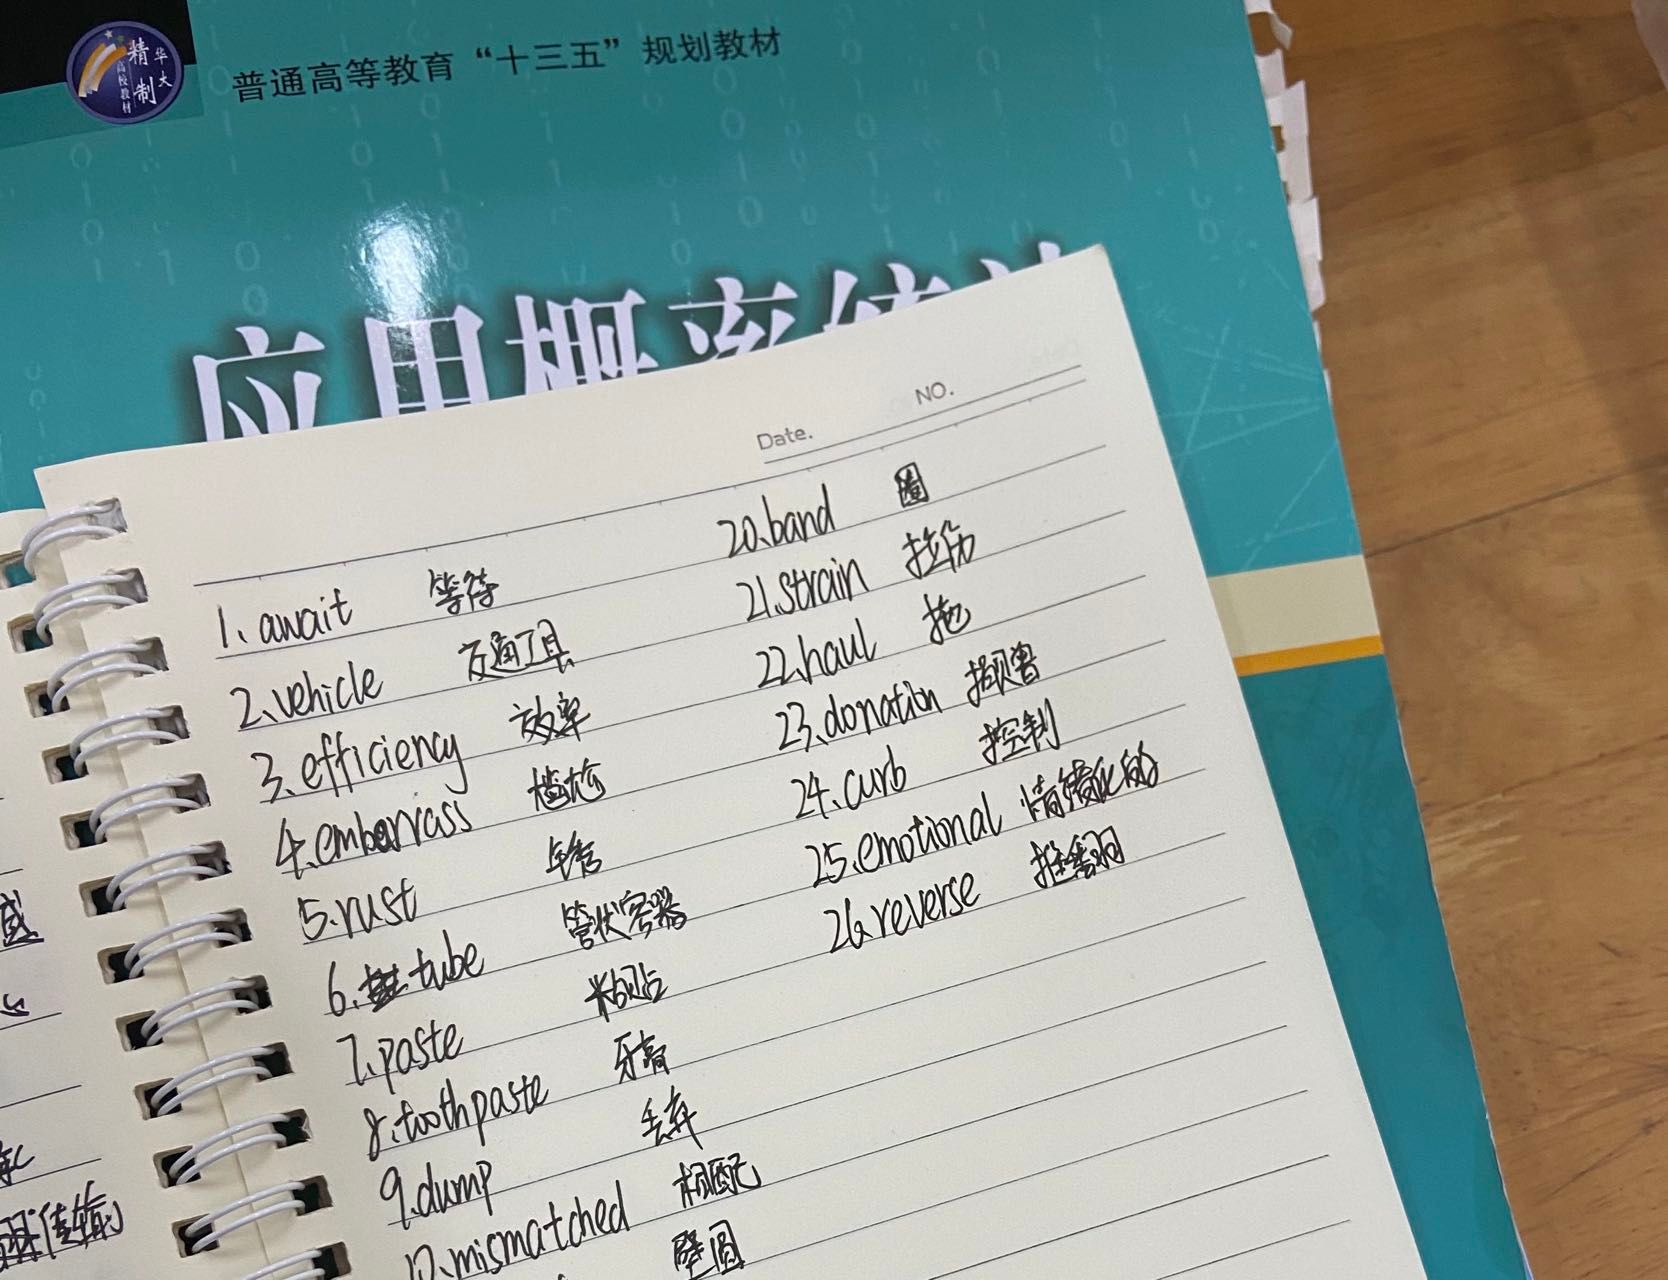 精制
华大
高校教材
普通高等教育“十三五”规划教材
应用概率统
Date.
NO.
1、await 等待
2、vehicle 交通工具
3、efficiency 效率
4、embarrass 尴尬
5、rust 生锈
6、tube 管状容器
7、paste 粘贴
8、toothpaste 牙膏
9、dump 丢弃
10、mismatched 相配
20、band 圈
21、strain 拉伤
22、haul 拖
23、donation 捐赠
24、curb 控制
25、emotional 情绪化的
26、reverse 推翻
感
传输